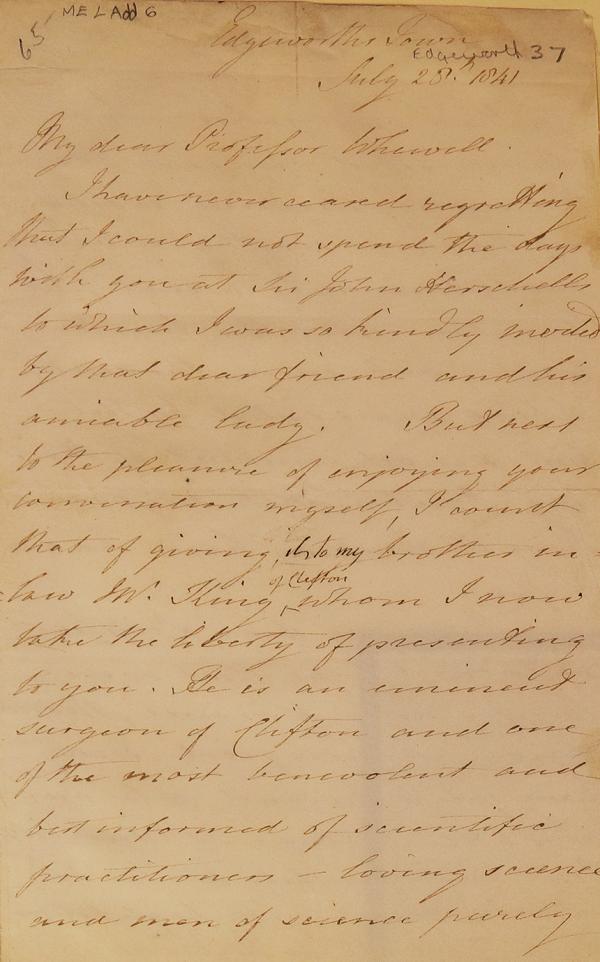 65
MEL Add 6
Edgeworths Town
Edgeworth 37
July 28th 1841
My dear Professor Whewell.
I have never ceased regretting
that I could not spend the days
with you at Sir John Herschells
to which I was so kindly invited
by that dear friend and his
amiable lady. But next
to the pleasure of enjoying your
conversation myself, I count
that of giving it to my brother in=
of Clifton
=law Mr. King, whom I now
take the liberty of presenting
to you. He is an eminent
surgeon of Clifton and one
of the most benevolent and
best informed of scientific
practitioners – loving science
and men of science purely